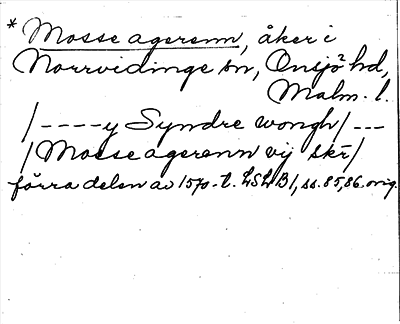 * Mosse agerenn, åker i
Norrvidinge sn, Onsjö hd,
Malm. l.
/----y Syndre wongh/---
/Mosse agerenn vij skr/
förra delen av 1570-t. LSLB1, ss. 85, 86. orig.